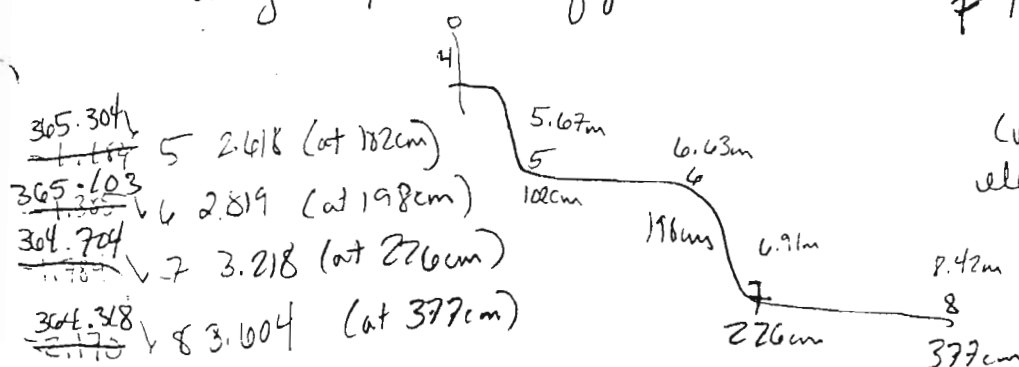 0
4
365.304
5 2.618 (at 102cm)
365.103
6 2.819 (at 198cm)
364.704
7 3.218 (at 226cm)
364.318
8 3.604 (at 377cm)
5.67m
5
102cm
6.63m
6
198cm
6.91m
7
226cm
8.42m
8
377cm